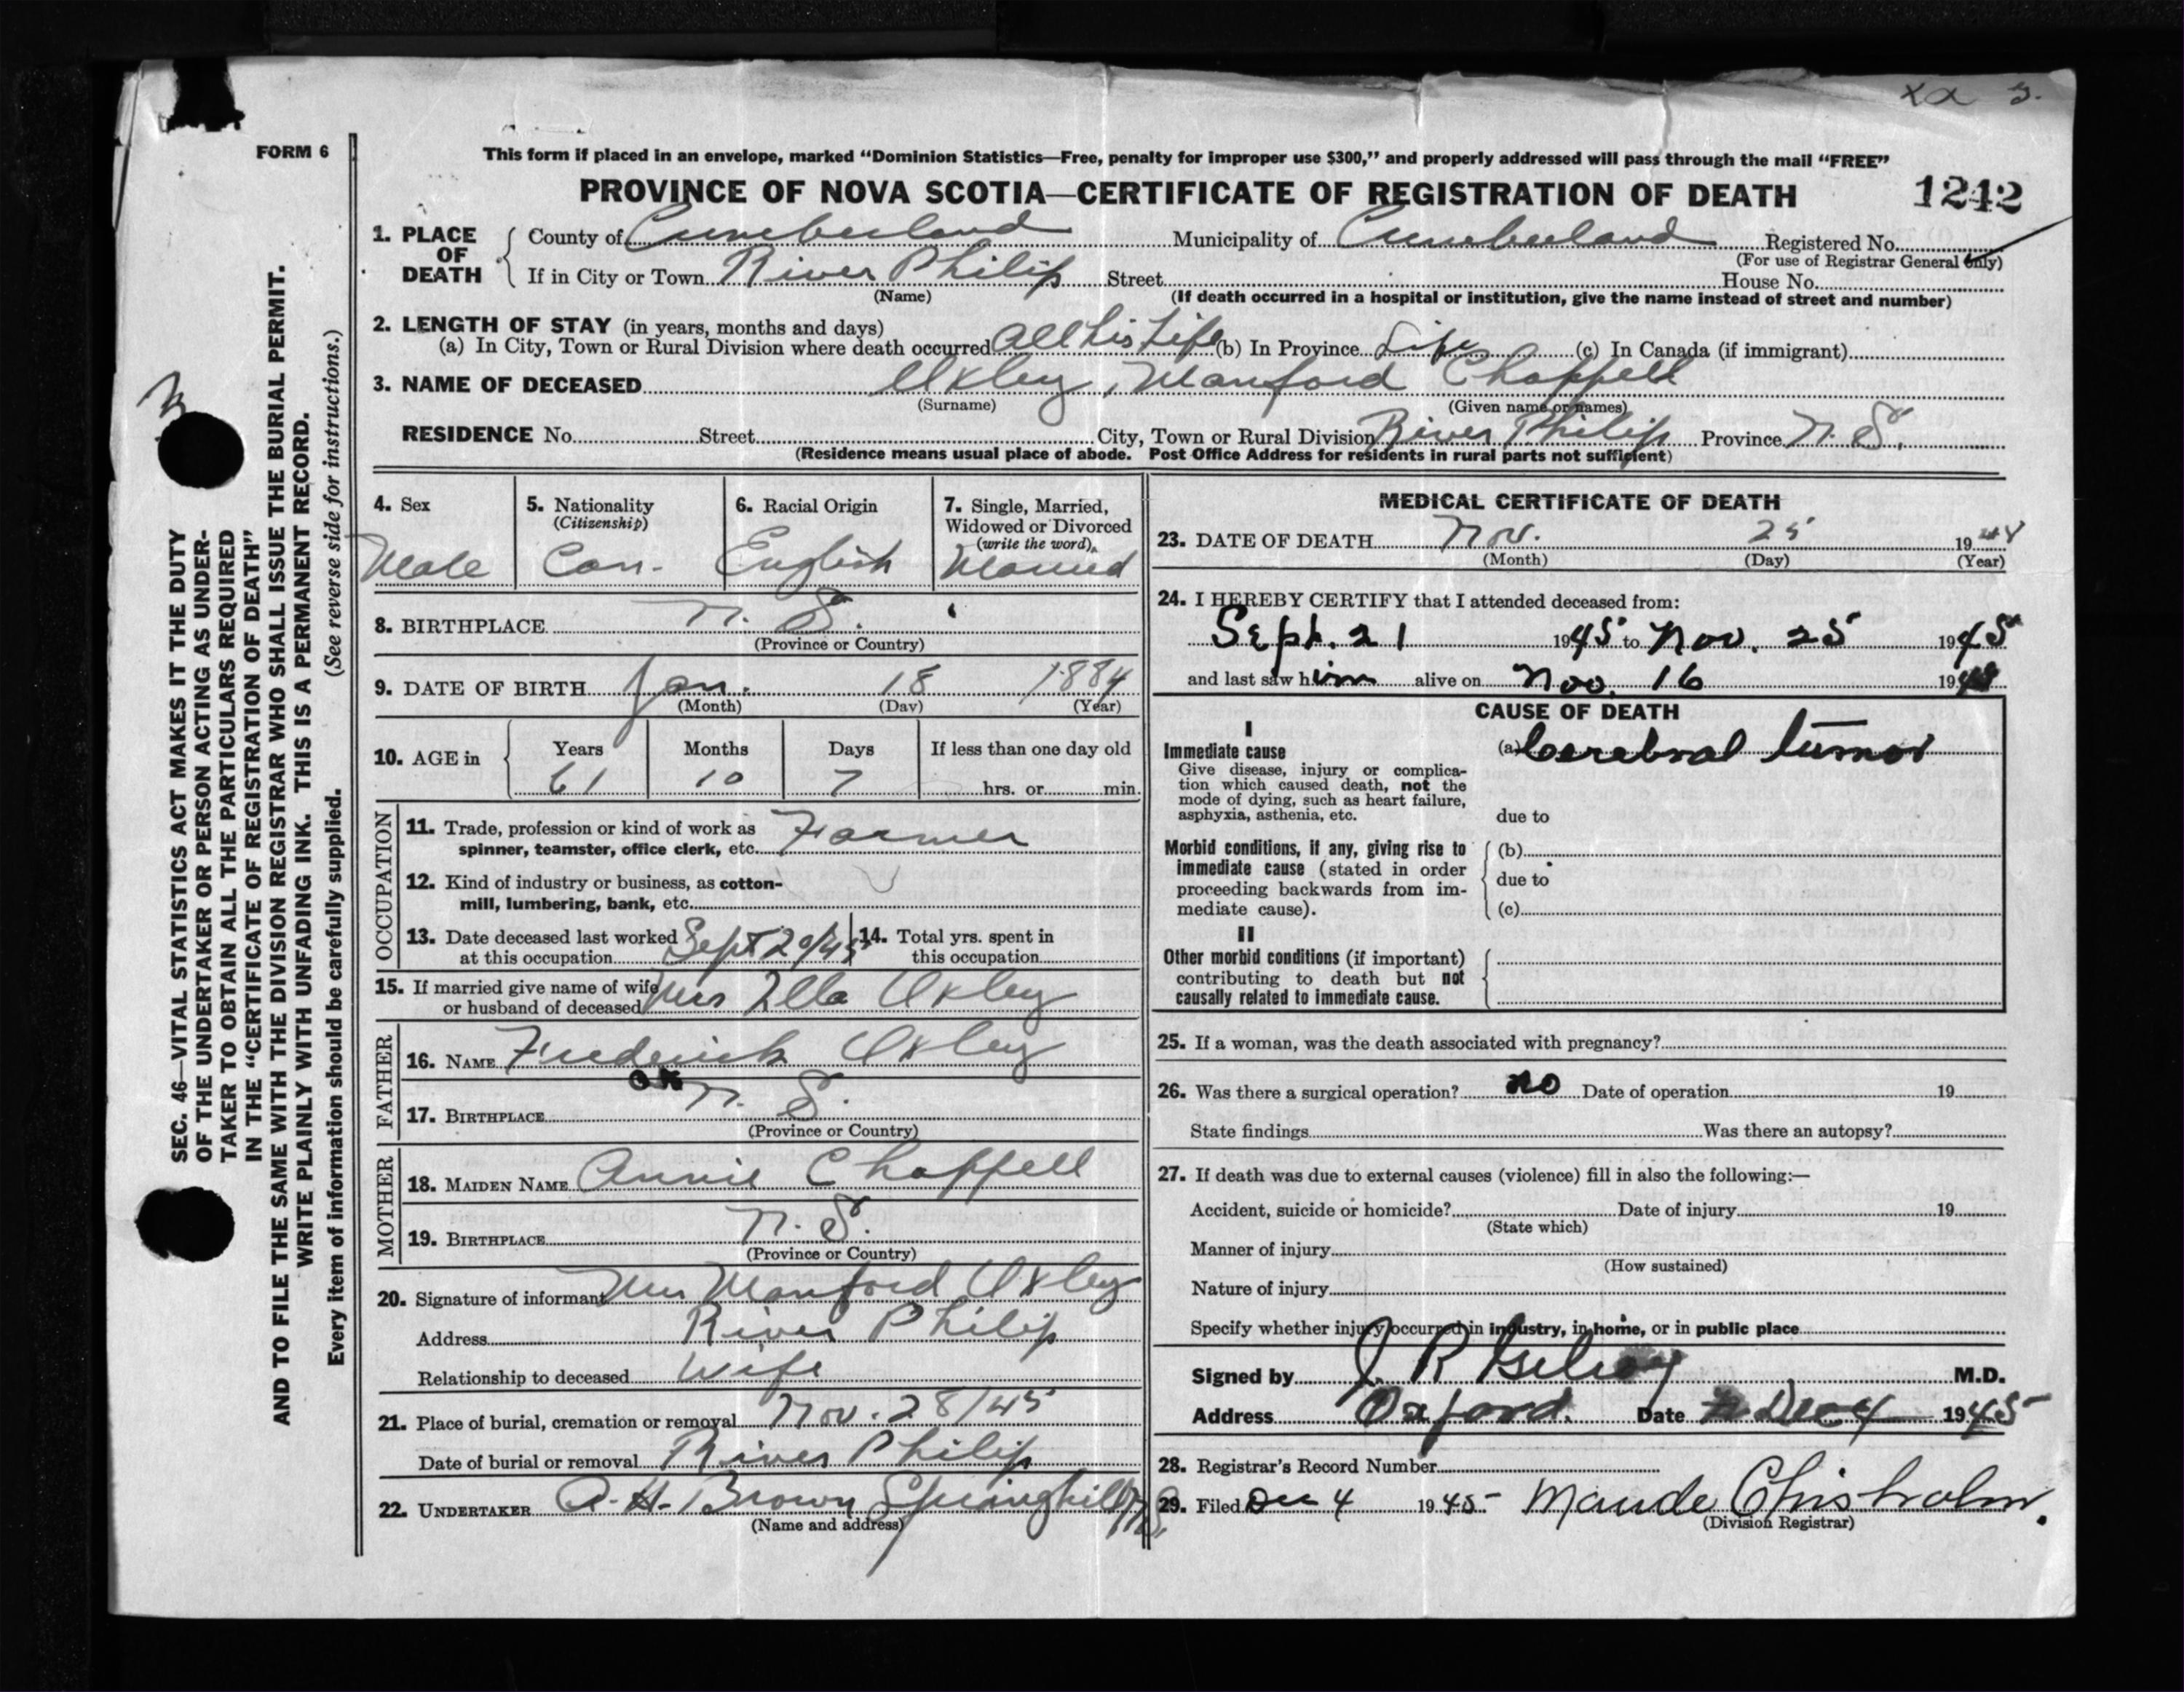 xx 3.
FORM 6
This form if placed in an envelope, marked "Dominion Statistics—Free, penalty for improper use $300," and properly addressed will pass through the mail "FREE"
PROVINCE OF NOVA SCOTIA—CERTIFICATE OF REGISTRATION OF DEATH 1242
1. PLACE OF DEATH County of Cumberland Municipality of Cumberland Registered No.
(For use of Registrar General only)
If in City or Town River Philip Street House No.
(Name) (If death occurred in a hospital or institution, give the name instead of street and number)
2. LENGTH OF STAY (in years, months and days)
(a) In City, Town or Rural Division where death occurred all his Life (b) In Province Life (c) In Canada (if immigrant)
3. NAME OF DECEASED Oxley, Manford Chappell
(Surname) (Given name or names)
RESIDENCE No. Street City, Town or Rural Division River Philip Province N. S.
(Residence means usual place of abode. Post Office Address for residents in rural parts not sufficient)
4. Sex Male
5. Nationality (Citizenship) Can.
6. Racial Origin English
7. Single, Married, Widowed or Divorced (write the word) Married
8. BIRTHPLACE N. S.
(Province or Country)
9. DATE OF BIRTH Jan. 18 1884
(Month) (Day) (Year)
10. AGE in Years Months Days If less than one day old
61 10 7 hrs. or min.
OCCUPATION
11. Trade, profession or kind of work as spinner, teamster, office clerk, etc. Farmer
12. Kind of industry or business, as cotton-mill, lumbering, bank, etc.
13. Date deceased last worked at this occupation Sept 20/45
14. Total yrs. spent in this occupation
15. If married give name of wife or husband of deceased Mrs Ella Oxley
FATHER
16. NAME Frederick Oxley
17. BIRTHPLACE N. S.
(Province or Country)
MOTHER
18. MAIDEN NAME Annie Chappell
19. BIRTHPLACE N. S.
(Province or Country)
20. Signature of informant Mrs Manford Oxley
Address River Philip
Relationship to deceased Wife
21. Place of burial, cremation or removal Nov. 28/45
Date of burial or removal River Philip
22. UNDERTAKER A. H. Brown Springhill N.S.
(Name and address)
MEDICAL CERTIFICATE OF DEATH
23. DATE OF DEATH Nov. 25 19
(Month) (Day) (Year)
24. I HEREBY CERTIFY that I attended deceased from:
Sept. 21 1945 to Nov. 25 1945
and last saw him alive on Nov. 16 1945
CAUSE OF DEATH
I
Immediate cause (a) Cerebral tumor
Give disease, injury or complication which caused death, not the mode of dying, such as heart failure, asphyxia, asthenia, etc.
due to
Morbid conditions, if any, giving rise to immediate cause (stated in order proceeding backwards from immediate cause).
(b)
due to
(c)
II
Other morbid conditions (if important) contributing to death but not causally related to immediate cause.
25. If a woman, was the death associated with pregnancy?
26. Was there a surgical operation? no Date of operation 19
State findings Was there an autopsy?
27. If death was due to external causes (violence) fill in also the following:—
Accident, suicide or homicide? Date of injury 19
(State which)
Manner of injury
(How sustained)
Nature of injury
Specify whether injury occurred in industry, in home, or in public place
Signed by J. R. Gilroy M.D.
Address Oxford. Date Dec 4 1945
28. Registrar's Record Number
29. Filed Dec 4 1945 Maude Chisholm.
(Division Registrar)
SEC. 46—VITAL STATISTICS ACT MAKES IT THE DUTY
OF THE UNDERTAKER OR PERSON ACTING AS UNDER-
TAKER TO OBTAIN ALL THE PARTICULARS REQUIRED
IN THE "CERTIFICATE OF REGISTRATION OF DEATH"
AND TO FILE THE SAME WITH THE DIVISION REGISTRAR WHO SHALL ISSUE THE BURIAL PERMIT.
WRITE PLAINLY WITH UNFADING INK. THIS IS A PERMANENT RECORD.
Every item of information should be carefully supplied. (See reverse side for instructions.)